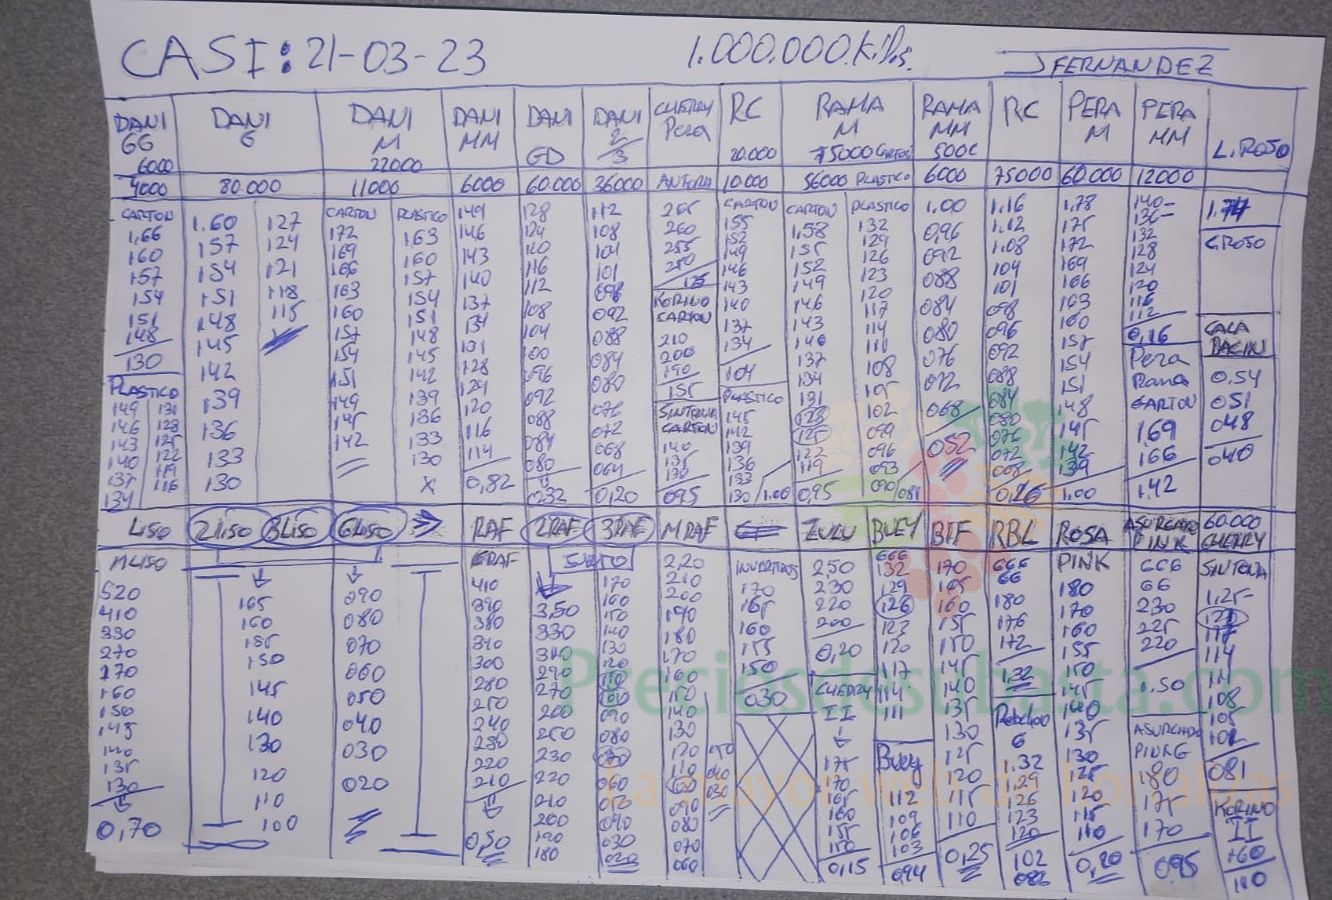 CASI: 21-03-23 1.000.000.Kilos. J FERNANDEZ
DANI GG 6000
DANI G
DANI M 22000
DANI MM
DANI GD
DANI 2/3
CHERRY Pera
RC 20.000
RAMA M 75000 CARTON
RAMA MM 5000
RC
PERA M
PERA MM
L.ROJO
4000 80.000 11000 6000 60.000 36000 10.000 56000 PLASTICO 6000 75000 60.000 12000
CARTON
1,66
160
157
154
151
148
130
PLASTICO
149 131
146 128
143 125
140 122
137 119
134 116
1.60 127
157 124
154 121
151 118
148 115
145
142
139
136
133
130
CARTON PLASTICO
172 163
169 160
166 157
163 154
160 151
157 148
154 145
151 142
149 139
145 136
142 133
130
X
149
146
143
140
137
134
131
128
124
120
116
114
0,82
128
124
120
116
112
108
104
100
096
092
088
084
080
032
112
108
104
101
098
092
088
084
080
076
072
068
064
0,20
265
260
255
250
135
KORINO
CARTON
210
200
190
155
SINTONIA
CARTON
140
135
130
095
CARTON
155
152
149
146
143
140
137
134
104
PLASTICO
145
142
139
136
133
130 1.00
CARTON PLASTICO
1,58 132
155 129
152 126
149 123
146 120
143 117
140 114
137 111
134 108
131 105
128 102
125 099
122 096
119 093
0,95 090 081
1.00
0,96
092
088
084
080
076
072
068
052
1.16
1.12
1.08
104
101
098
096
092
088
084
080
076
072
008
0,26
1.78
175
172
169
166
163
160
157
154
151
148
145
142
139
1.00
140-
136-
132
128
124
120
116
112
0,16
Pera
Rama
CARTON
169
166
1.42
1.74
G ROJO
CALA
BACIN
0.54
051
048
040
LISO 2LISO 3LISO 6LISO RAF 2RAF 3RAF MRAF ZULU BUEY BTF RBL ROSA ASURCADO PINK 60.000 CHERRY
MLISO
520
410
330
270
170
160
150
145
140
135
130
0,70
165
160
155
150
145
140
130
120
110
100
090
080
070
060
050
040
030
020
GRAF
410
390
380
340
300
280
250
240
230
220
210
0,50
SUELTO
3,50
330
310
290
270
260
250
230
220
210
200
190
180
170
160
150
140
130
120
090
060
050
040
030
020
2,20
210
200
190
180
170
160
150
140
130
120
110
100
090
080
070
060
170
165
160
155
150
030
250
230
220
200
0,20
CHERRY
II
175
170
165
160
155
150
0,15
666
132
129
126
123
120
117
114
111
Buey
112
109
106
103
094
170
165
160
155
150
145
140
135
130
125
120
115
110
0,25
666
66
180
176
172
1.32
G
1.32
1.29
126
123
120
102
082
PINK
180
170
160
155
150
145
140
135
130
125
120
115
110
0,20
666
66
230
225
220
1.50
ASURCADO
PINK G
180
175
170
0,95
SINTONIA
1.25
120
117
114
111
108
105
102
081
KORINO
II
160
110
Preciosdesubasta.com